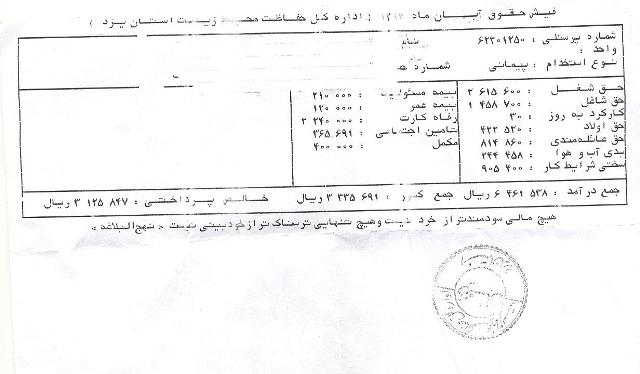 فیش حقوق آبان ماه ( اداره کل حفاظت محیط زیست استان یزد )
شماره پرسنلی : ۶۲۳۰۱۲۵۰
واحد :
نوع استخدام : پیمانی شماره
حق شغل : ۲ ۶۱۵ ۶۰۰
حق شاغل : ۱ ۴۵۸ ۷۰۰
کارکرد به روز : ۳۰
حق اولاد : ۴۲۲ ۵۲۰
حق عائله‌مندی : ۸۱۴ ۸۶۰
بدی آب و هوا : ۲۴۴ ۴۵۸
سختی شرایط کار : ۹۰۵ ۴۰۰
بیمه مسئولیت : ۲۱۰ ۰۰۰
بیمه عمر : ۱۲۰ ۰۰۰
رفاه کارت : ۲ ۲۴۰ ۰۰۰
تامین اجتماعی : ۳۶۵ ۶۹۱
مکمل : ۴۰۰ ۰۰۰
جمع درآمد : ۶ ۴۶۱ ۵۳۸ ریال جمع کسور : ۳ ۳۳۵ ۶۹۱ ریال خالص پرداختی : ۳ ۱۲۵ ۸۴۷ ریال
هیچ مالی سودمندتر از خرد نیست و هیچ تنهایی ترسناک تر از خودبینی نیست « نهج البلاغه »